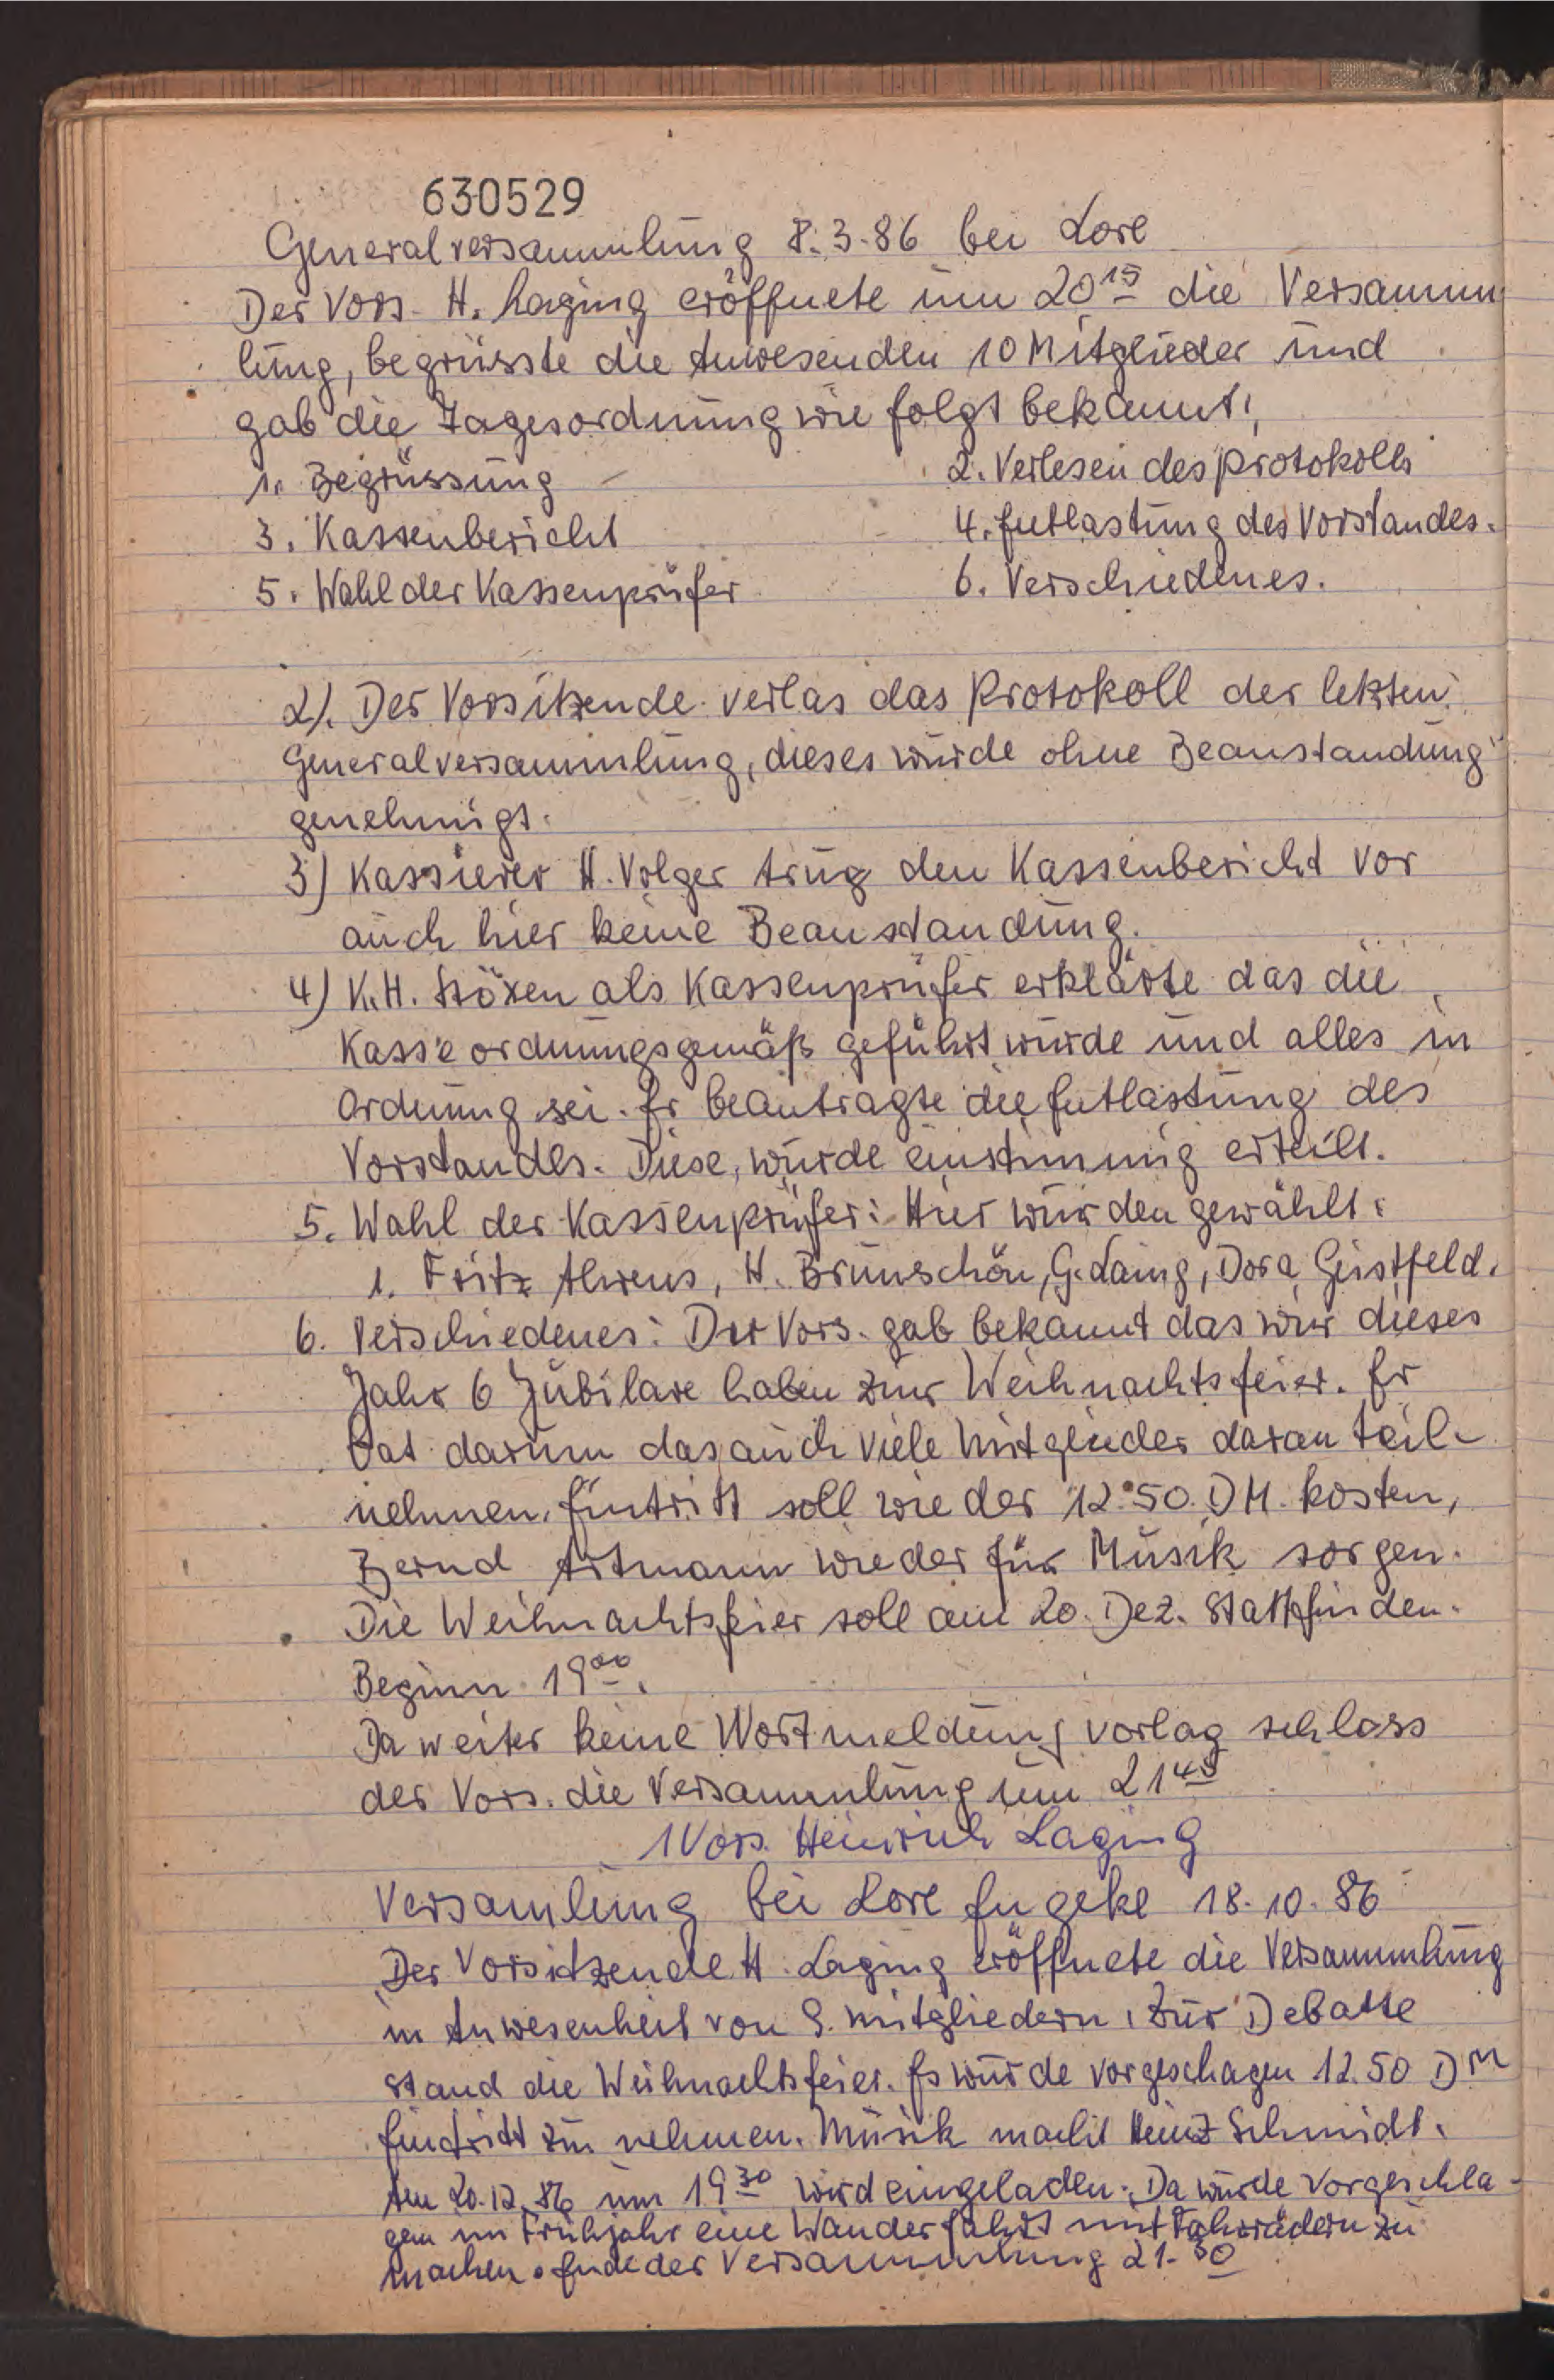 630529
Generalversammlung 8.3.86 bei Lore
Der Vors. H. Laging eröffnete um 20 15 die Versamm
lung, begrüsste die Anwesenden 10 Mitglieder und
gab die Tagesordnung wie folgt bekannt,
1. Begrüssung 2. Verlesen des Protokolls
3. Kassenbericht 4. Entlastung des Vorstandes.
5. Wahl der Kassenprüfer 6. Verschiedenes.
2). Der Vorsitzende verlas das Protokoll der letzten
Generalversammlung, dieses wurde ohne Beanstandung
genehmigt.
3) Kassierer H. Volger trug den Kassenbericht vor
auch hier keine Beanstandung.
4) K.H. Stöxen als Kassenprüfer erklärte das die
Kasse ordnungsgemäß geführt wurde und alles in
Ordnung sei. Er beantragte die Entlastung des
Vorstandes. Diese, wurde einstimmig erteilt.
5. Wahl der Kassenprüfer: Hier wurden gewählt:
1. Fritz Ahrens, H. Brunschön, G. Laing, Dora Geistfeld.
6. Verschiedenes: Der Vors. gab bekannt das wir dieses
Jahr 6 Jubilare haben zur Weihnachtsfeier. Er
bat darum das auch viele Mitglieder daran teil-
nehmen. Eintritt soll wieder 12.50. DM. kosten,
Bernd Artmann wieder für Musik sorgen.
Die Weihnachtsfeier soll am 20. Dez. Stattfinden.
Beginn 19 00.
Da weiter keine Wortmeldung vorlag schloss
der Vors. die Versammlung um 21 45
1 Vors. Heinrich Laging
Versamlung bei Lore Engeke 18.10.86
Der Vorsitzende H. Laging eröffnete die Versammlung
in Anwesenheit von 9. Mitgliedern, Zur Debatte
stand die Weihnachtsfeier. Es wurde vorgeschagen 12.50 DM
Eintritt zu nehmen. Musik macht Heinz Schmidt.
Am 20.12.86 um 19 30 wird eingeladen. Da wurde vorgeschla-
gen im Frühjahr eine Wanderfahrt mit Fahrrädern zu
machen. Ende der Versammlung 21.30